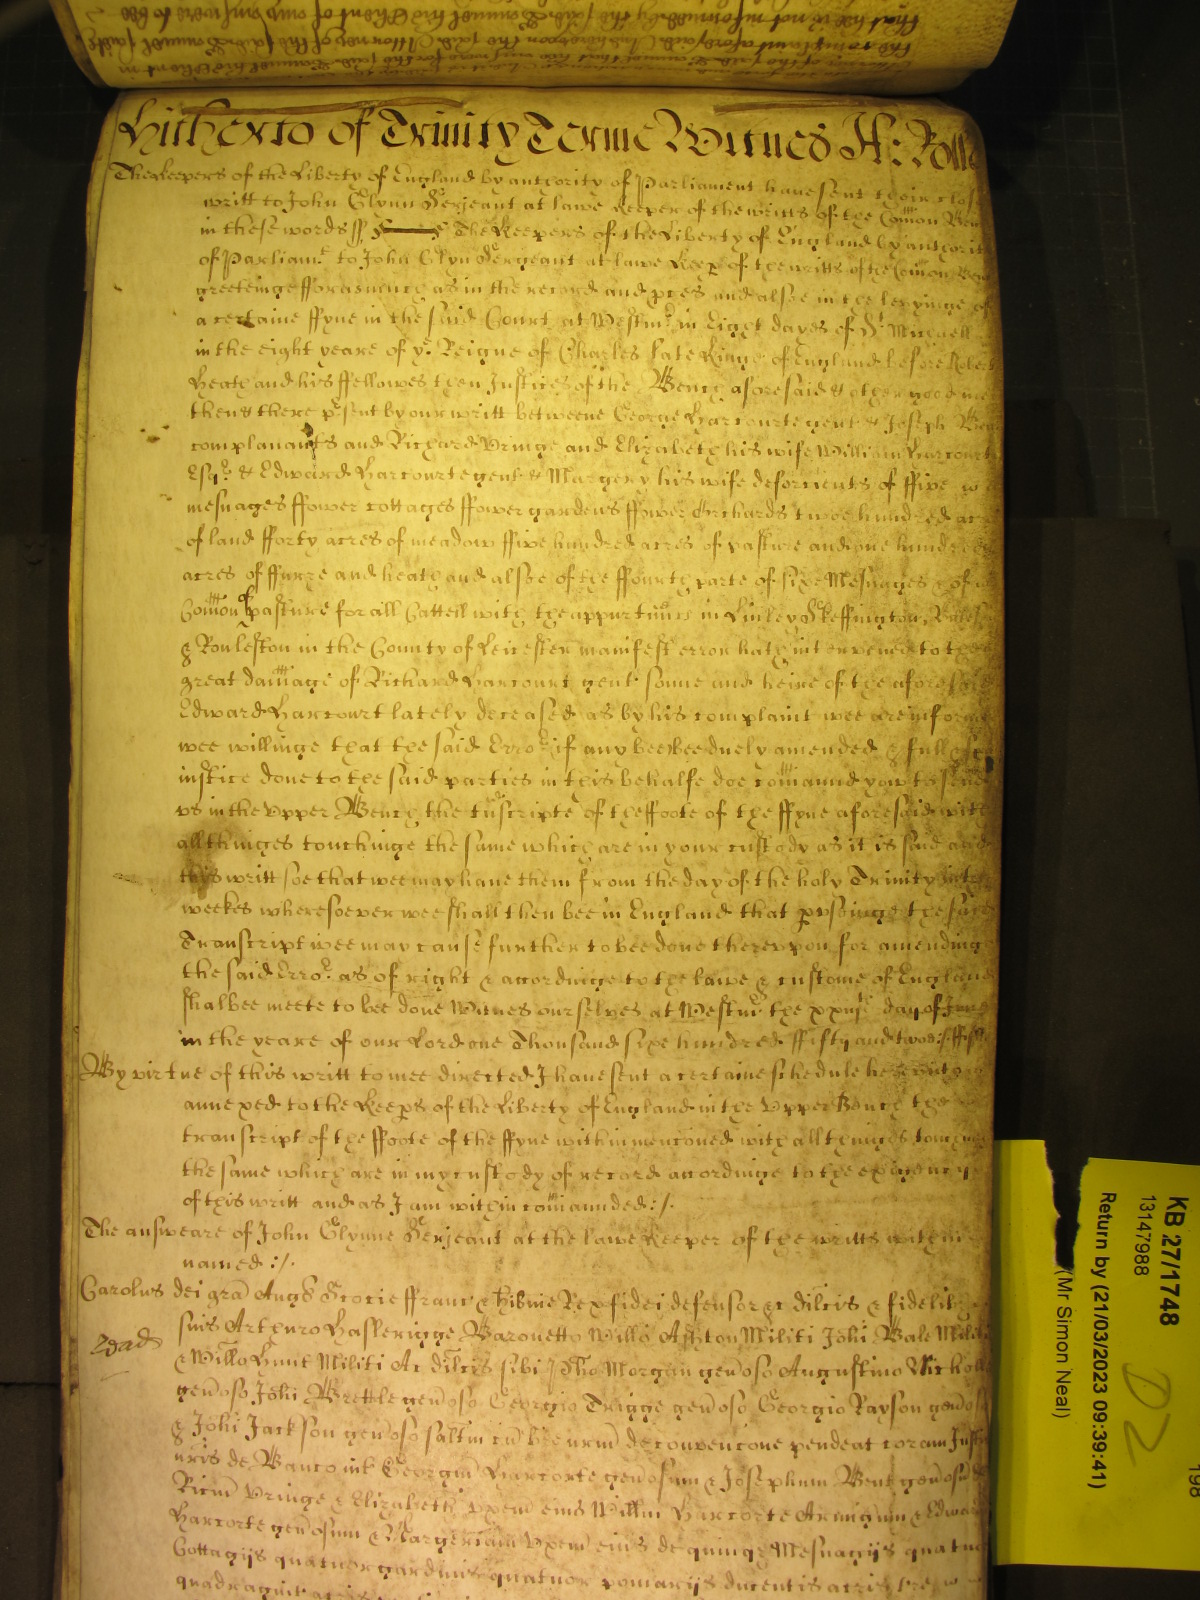 Hitherto of Trinity Terme Witnes H: Rolle
The Keepers of the Liberty of England by authority of Parliament have sent their close
writt to John Glynn Serjeant at lawe Keeper of the writts of the Com̃on Ben
in these words ss The Keepers of the Liberty of England by authorit
of Parliamt to John Glyn Sergeant at lawe Keep of the writts of the Com̃on Benc
greeteinge fforasmuch as in the record and pces and alsoe in the levyinge of
a certaine ffyne in the said Court at Westmr in Eight dayes of St Michaell
in the eight yeare of ye Reigne of Charles late Kinge of England before Robert
Heath and his ffellowes then Justices of the Bench aforesaid & other good me
then & there psent by our writt betweene George Harcourte gent & Joseph Ben
complanants and Richard Uringe and Elizabeth his wife William Harcourt
Esqr & Edward Harcourte gent & Margery his wife deforcients of ffive
mesuages ffower cottages ffower gardens ffower Orchards twoe hundred acr
of land fforty acres of meadow ffive hundred acres of pasture and one hundred
acres of ffurze and heath and alsoe of the ffourth parte of sixe Mesuages & of
Com̃on of pasture for all Cattell with the appurtnncs in Linley Skeffington
& Rouleston in the County of Leicester manifest error hath intervened to the
great dam̃age of Richard Harcourt gent sonne and heire of the aforesaid
Edward Harcourt lately deceased as by his complaint wee are inform
wee willinge that the said Error if any bee bee duely amended & full
justice done to the said parties in this behalfe doe com̃annd yow to send
us in the Upper Bench the tñscripte of the ffoote of the ffyne aforesaid with
all thinges touchinge the same which are in your custody as it is said and
this writt soe that wee may have them from the day of the holy Trinity in
weekes wheresoever wee shall then bee in England that pusinge the said
Transcript wee may cause further to bee done thereuppon for amending
the said Error as of right & accordinge to the lawe & custome of England
shalbee meete to bee done Witnes ourselves at Westmr the day of June
in the yeare of our Lord one Thousand sixe hundred ffifty and twoe
By virtue of this writt to mee directed I have sent a certaine schedule hereunto
annexed to the Keeps of the Liberty of England in the Upper Bench the
transcript of the ffoote of the ffyne within menc̃oned with all thinges touching
the same which are in my custody of record accordinge to the exigency
of this writt and as I am within com̃annded :/.
The answeare of John Glynne Serjeant at the lawe Keeper of the writts within
named :/.
Carolus dei gra Angl Scocie ffranc & Hibnie Rex fidei defensor &c dilcis & fidelib
suis Arthuro Haslerigge Baronetto Willo Ashton Militi Johi Bale Militi
& Willo Hunt Militi Ac dilcis sibi Tho Morgan gen̄oso Augustino Nicholl
gen̄oso Johi Brettle gen̄oso Georgio Trigge gen̄oso Georgio Rayson gen̄oso
& Johi Jackson gen̄oso saltm cū bre nrm de convencone pendeat coram Justic
nris de Banco int Georgiū Harcorte gen̄osum & Josephum Bent gen̄osū
Ricm Uringe & Elizabeth uxem eius Willm Harcorte Armigum & Edward
Harcorte gen̄osum & Margeriam uxem eius de quinq Mesuagijs quatuor
Cottagijs quatuor gardinis quatuor pomarijs ducentis acris tre
quadragint acris
KB 27/1748
13147988
Return by (21/03/2023 09:39:41)
(Mr Simon Neal)
D2
198